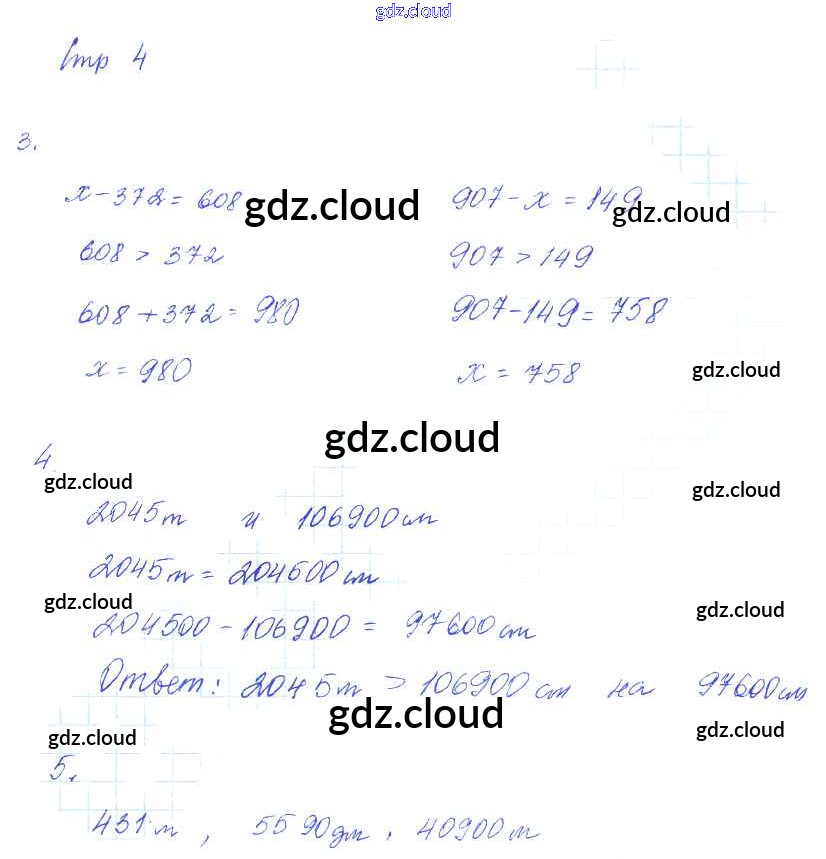 gdz.cloud
Стр 4
3.
x - 372 = 608 gdz.cloud 907 - x = 149 gdz.cloud
608 > 372 907 > 149
608 + 372 = 980 907 - 149 = 758
x = 980 x = 758 gdz.cloud
gdz.cloud
4.
gdz.cloud gdz.cloud
2045 m и 106900 cm
2045 m = 204500 cm
gdz.cloud gdz.cloud
204500 - 106900 = 97600 cm
Ответ: 2045 m > 106900 cm на 97600 cm
gdz.cloud gdz.cloud gdz.cloud
5.
431 m, 5590 дм, 40900 m